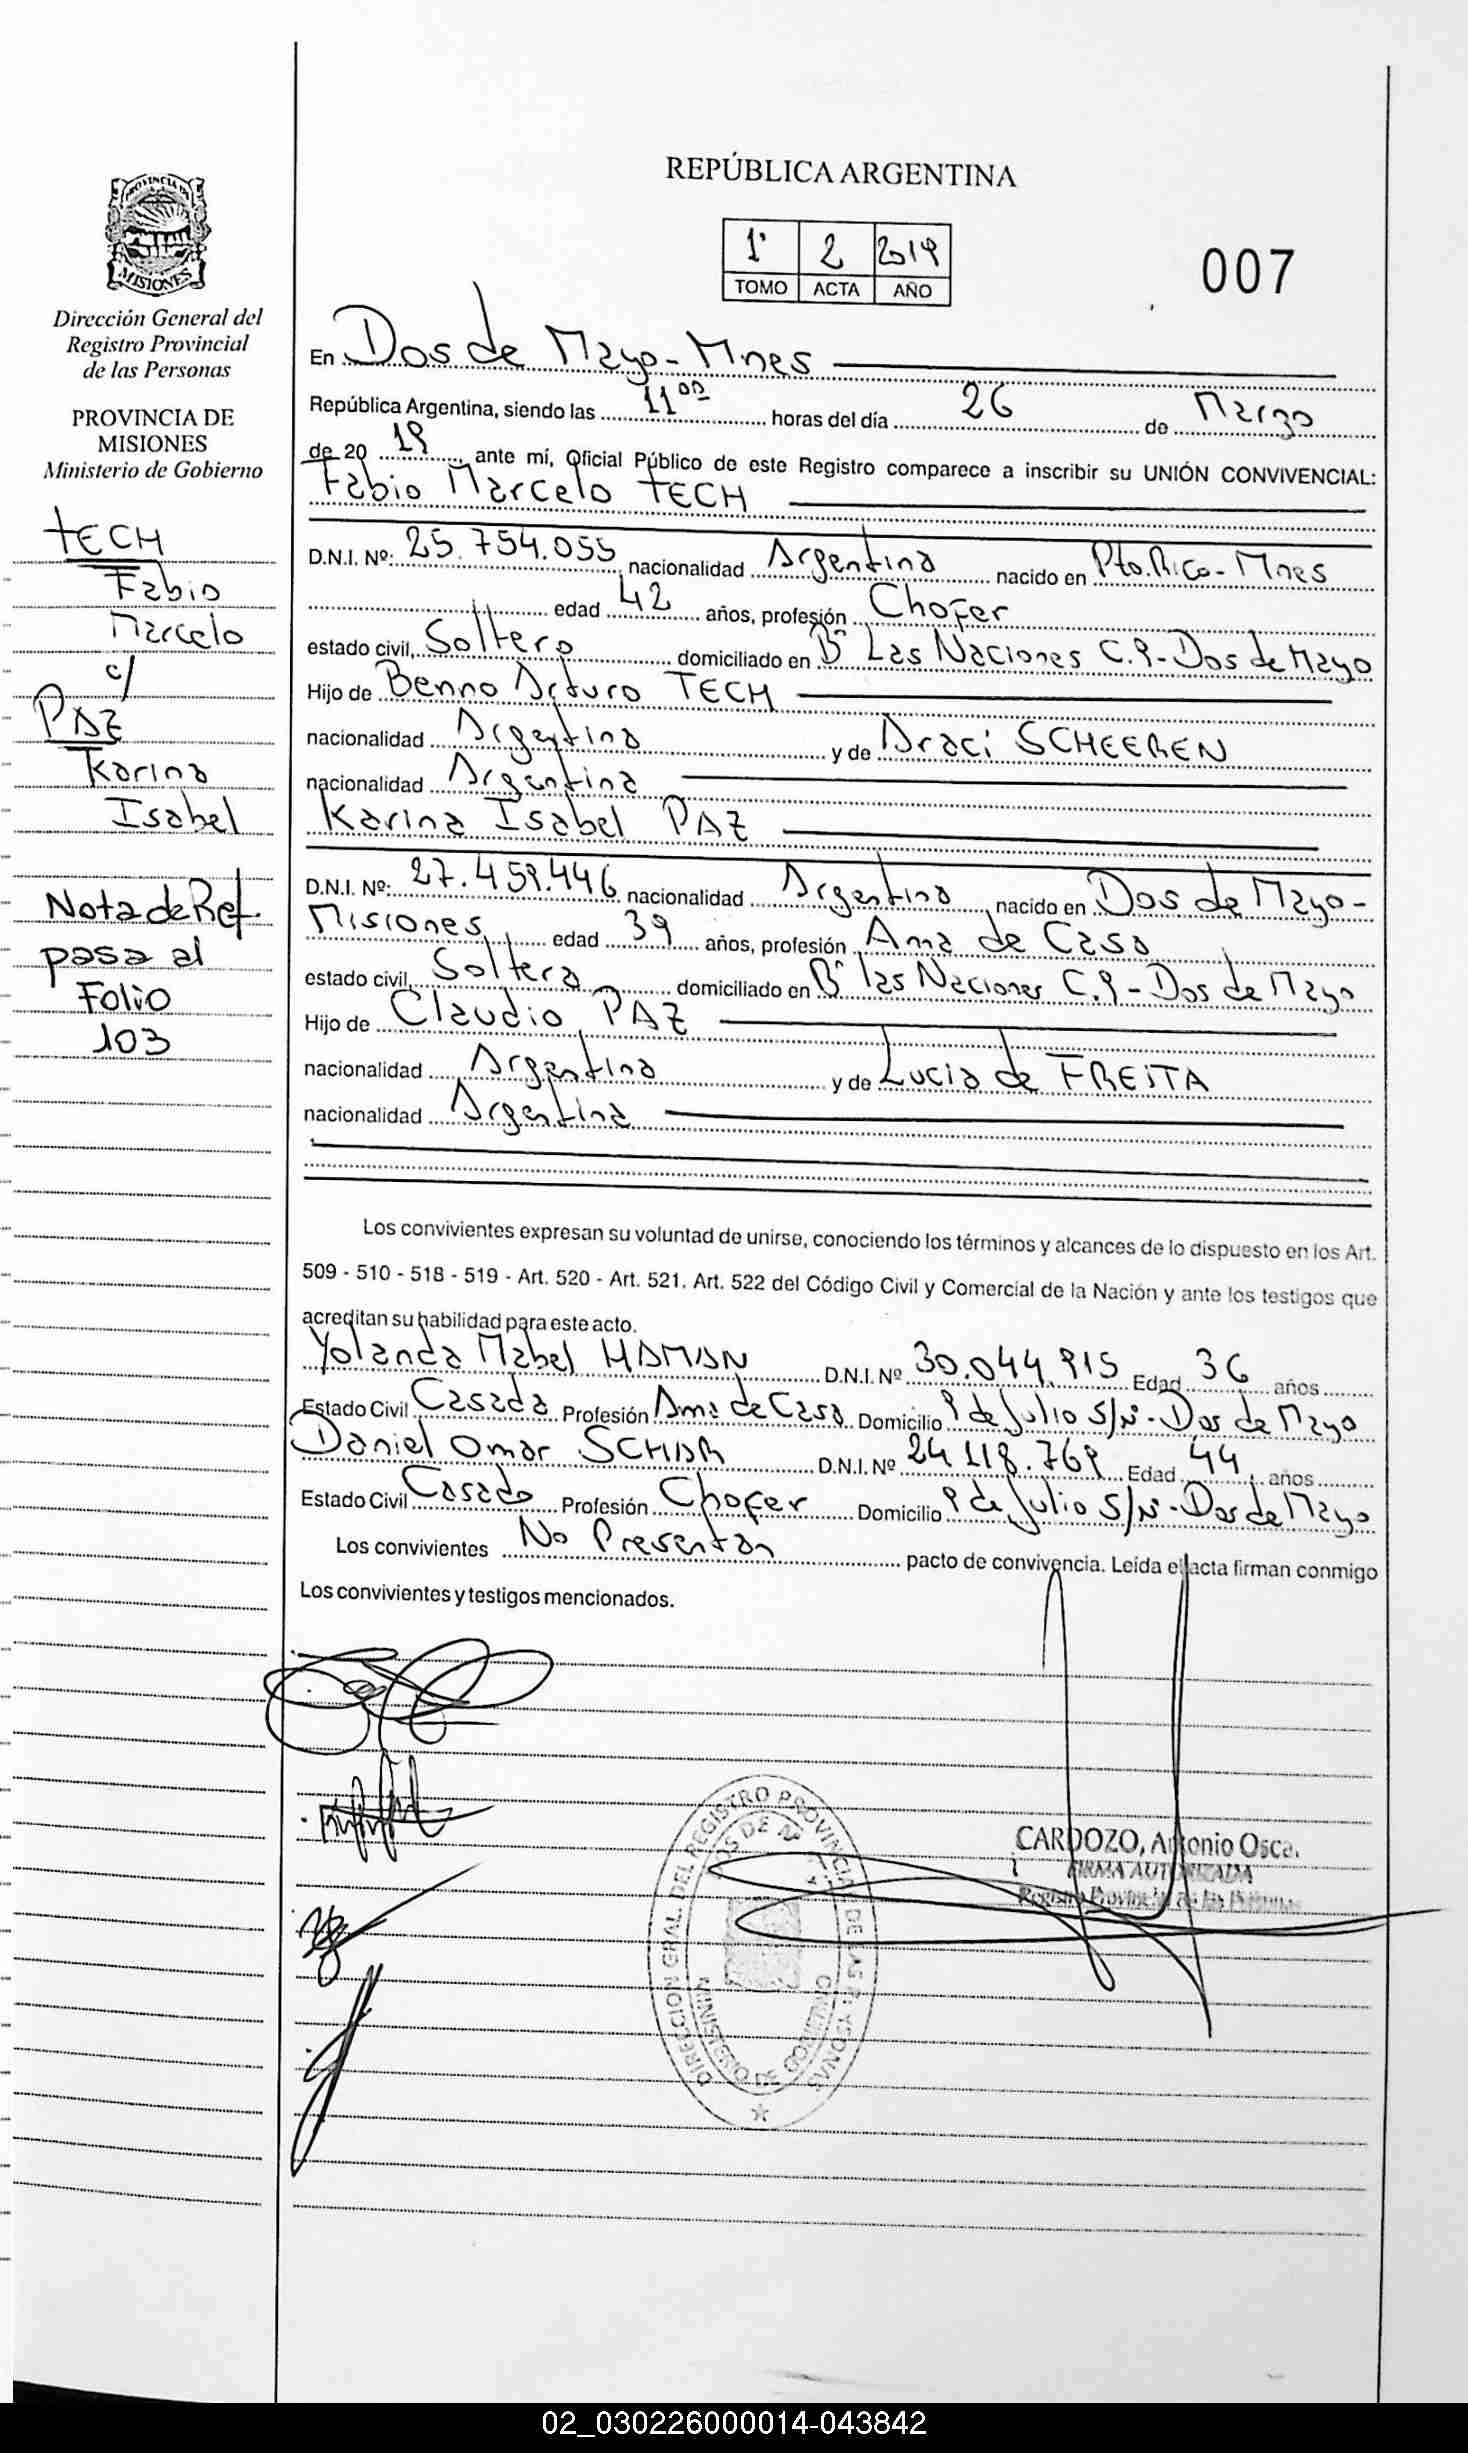 REPÚBLICA ARGENTINA
1º 2 2019
TOMO ACTA AÑO
007
PROVINCIA DE
MISIONES
Dirección General del
Registro Provincial
de las Personas
PROVINCIA DE
MISIONES
Ministerio de Gobierno
TECH
Fabio
Marcelo
c/
PAZ
Karina
Isabel
Nota de Ref.
pasa al
Folio
103
En Dos de Mayo - Mnes
República Argentina, siendo las 11 00 horas del día 26 de Marzo
de 20 19 ante mí, Oficial Público de este Registro comparece a inscribir su UNIÓN CONVIVENCIAL:
Fabio Marcelo TECH
D.N.I. Nº: 25.754.055 nacionalidad Argentina nacido en Pto. Rico - Mnes
edad 42 años, profesión Chofer
estado civil, Soltero domiciliado en Bº Las Naciones C.9 - Dos de Mayo
Hijo de Benno Arturo TECH
nacionalidad Argentina y de Araci SCHEEREN
nacionalidad Argentina
Karina Isabel PAZ
D.N.I. Nº: 27.459.446 nacionalidad Argentina nacido en Dos de Mayo -
Misiones edad 39 años, profesión Ama de Casa
estado civil, Soltera domiciliado en Bº las Naciones C.9 - Dos de Mayo
Hijo de Claudio PAZ
nacionalidad Argentina y de Lucia de FREITA
nacionalidad Argentina
Los convivientes expresan su voluntad de unirse, conociendo los términos y alcances de lo dispuesto en los Art.
509 - 510 - 518 - 519 - Art. 520 - Art. 521. Art. 522 del Código Civil y Comercial de la Nación y ante los testigos que
acreditan su habilidad para este acto.
Yolanda Mabel HAMAN D.N.I. Nº 30.044.915 Edad 36 años
Estado Civil Casada Profesión Ama de Casa Domicilio 9 de Julio S/Nº - Dos de Mayo
Daniel Omar SCHAR D.N.I. Nº 24.118.769 Edad 44 años
Estado Civil Casado Profesión Chofer Domicilio 9 de Julio S/Nº - Dos de Mayo
Los convivientes No Presentan pacto de convivencia. Leída el acta firman conmigo
Los convivientes y testigos mencionados.
CARDOZO, Antonio Osca.
FIRMA AUTORIZADA
Registro Provincial de las Personas
DIRECCION GRAL. DEL REGISTRO PROVINCIAL DE LAS PERSONAS
02_030226000014-043842